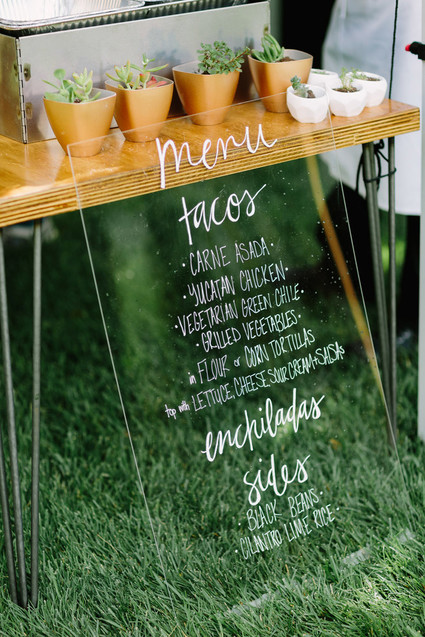 menu
tacos
· CARNE ASADA ·
· YUCATAN CHICKEN ·
· VEGETARIAN GREEN CHILE ·
GRILLED VEGETABLES ·
in FLOUR or CORN TORTILLAS
top with LETTUCE, CHEESE, SOUR CREAM + SALSA
enchiladas
sides
· BLACK BEANS ·
· CILANTRO LIME RICE ·